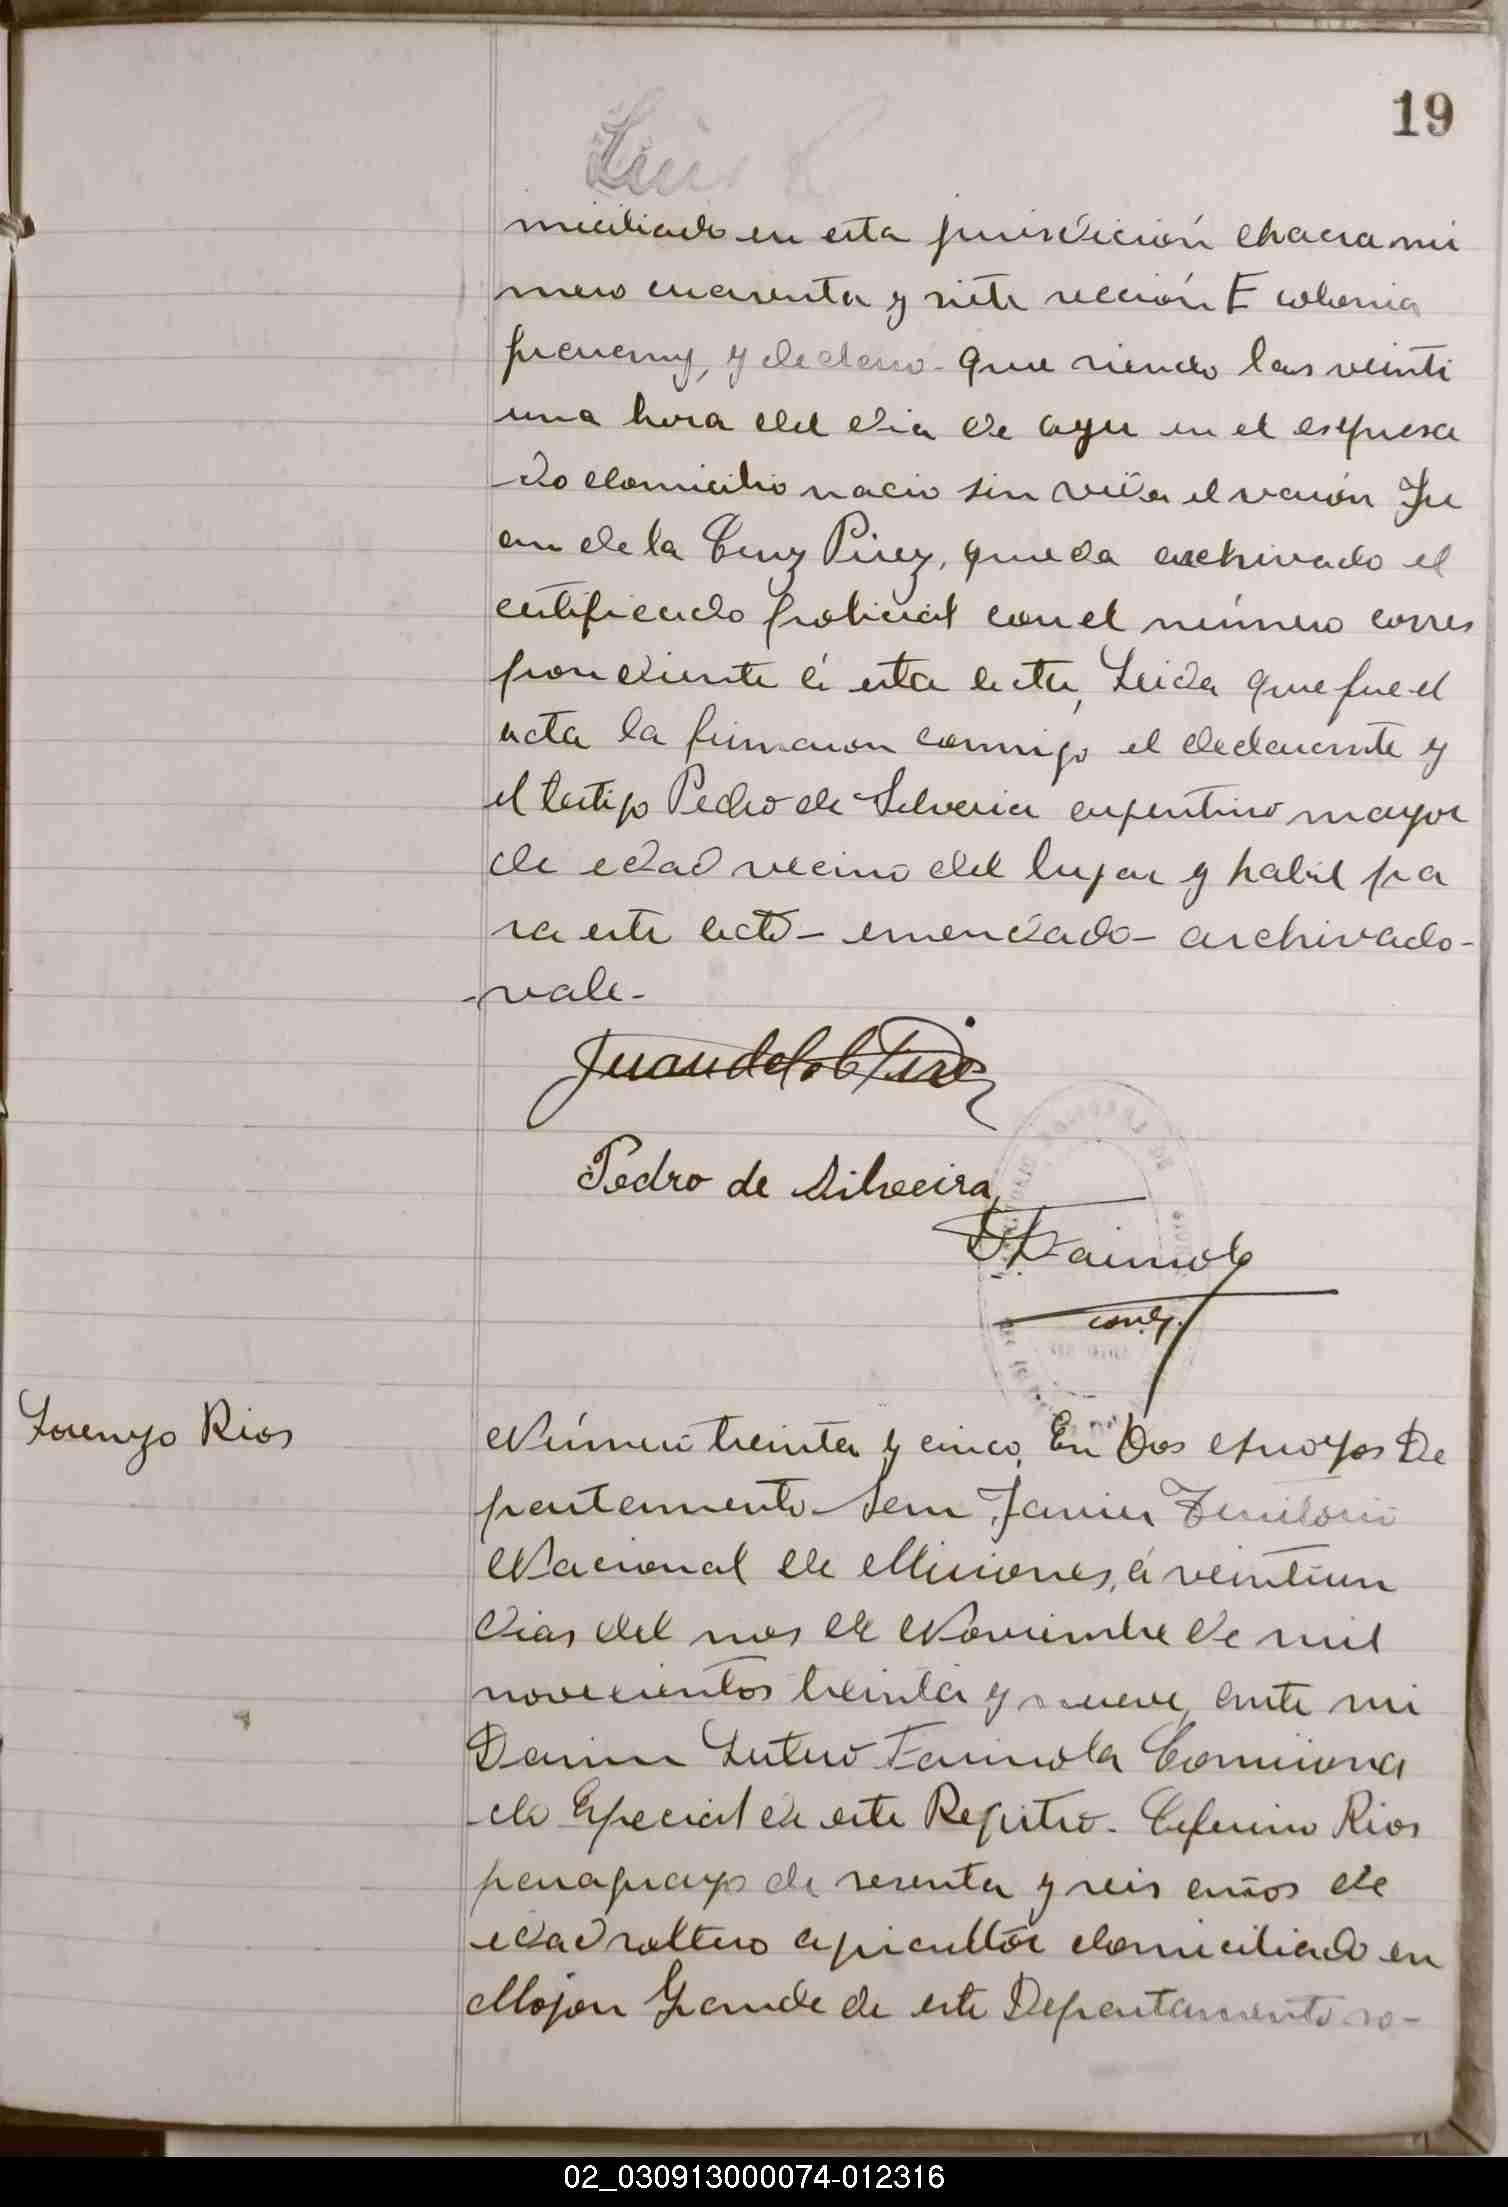 19
Luis
miciliado en esta jurisdición chacra nú
mero cuarenta y siete sección E colonia
y declaró que siendo las veinti
una hora del dia de ayer en el espresa
do domicilio nació sin vida el varón Ju
an de la Cruz Pirez, queda archivado el
certificado policial con el número corres
pondiente á esta acta, Leida que fue el
acta la firmaron conmigo el declarante y
el testigo Pedro de Silveria argentino mayor
de edad vecino del lugar y habil pa
ra este acto - emendado - archivado -
- vale -
Juan de la C Pirez
Pedro de Silveira
Lorenzo Rios
Número treinta y cinco, En Dos Arroyos De
partamento San Javier Territorio
Nacional de Misiones, á veintiun
dias del mes de Noviembre de mil
novecientos treinta y nueve, ante mi
Comisiona
do Especial de este Registro - Ceferino Rios
paraguayo de sesenta y seis años de
edad soltero agricultor domiciliado en
Mojon Grande de este Departamento so-
02_030913000074-012316